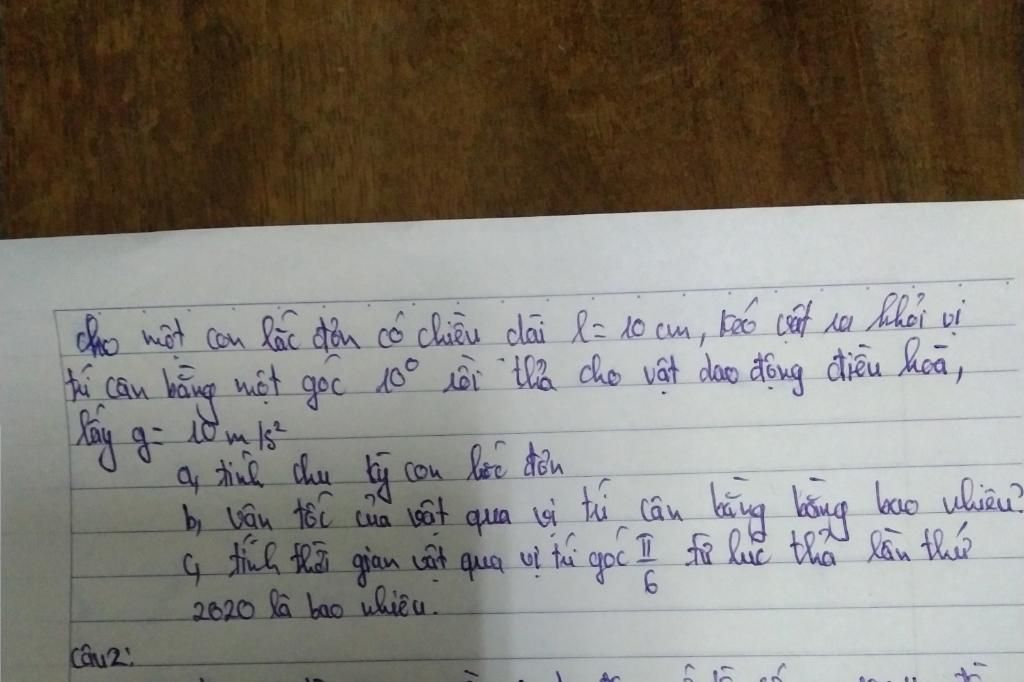 Cho một con lắc đơn có chiều dài l = 10 cm, kéo vật ra khỏi vị
trí cân bằng một góc 10⁰ rồi thả cho vật dao động điều hoà,
lấy g = 10 m/s²
a, tính chu kỳ con lắc đơn
b, vận tốc của vật qua vị trí cân bằng bằng bao nhiêu?
c, tính thời gian vật qua vị trí góc π/6 từ lúc thả lần thứ
2020 là bao nhiêu.
Câu 2: